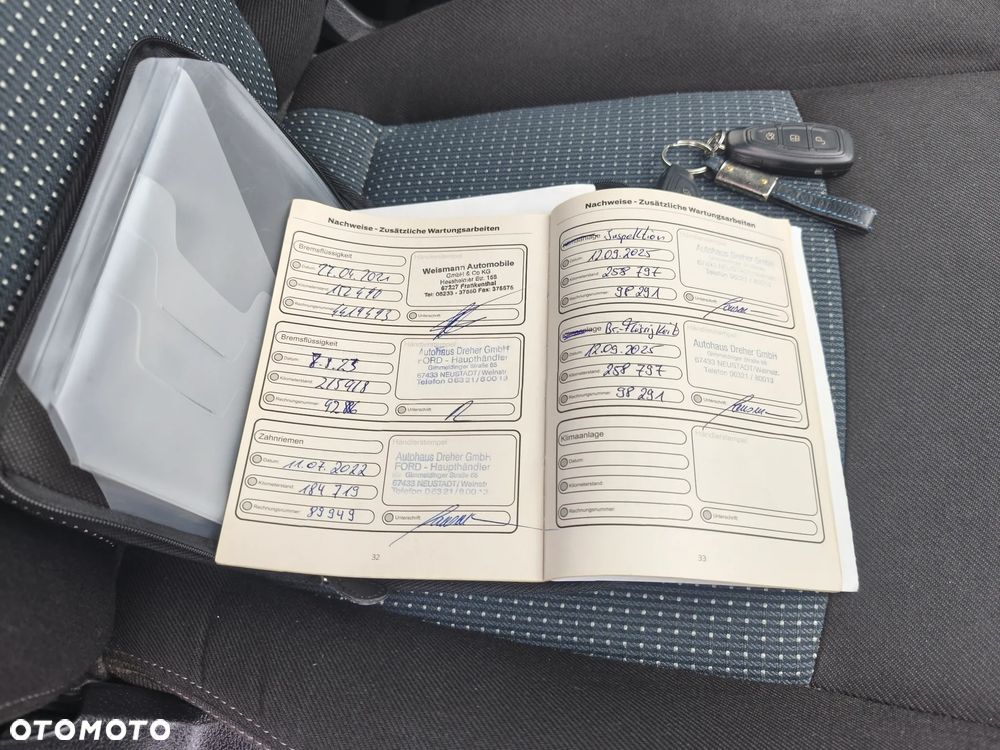 Nachweise - Zusätzliche Wartungsarbeiten
Bremsflüssigkeit
Datum: 22.04.2021
Kilometerstand: 152490
Rechnungsnummer: 4419493
Weismann Automobile
GmbH & Co KG
Hessheimer Str. 168
67227 Frankenthal
Tel: 06233 - 37660 Fax: 376576
Unterschrift
Bremsflüssigkeit
Datum: 2.1.23
Kilometerstand: 215918
Rechnungsnummer: 92886
Händlerstempel
Autohaus Dreher GmbH
FORD - Haupthändler
Gimmeldinger Straße 65
67433 NEUSTADT/Weinstr
Telefon 06321/80013
Unterschrift
Zahnriemen
Datum: 11.07.2022
Kilometerstand: 184 719
Rechnungsnummer: 89949
Händlerstempel
Autohaus Dreher GmbH
FORD - Haupthändler
Gimmeldinger Straße 65
67433 NEUSTADT/Weinstr
Telefon 06321/80013
Unterschrift
32
Nachweise - Zusätzliche Wartungsarbeiten
Inspektion
Datum: 12.09.2025
Kilometerstand: 258 797
Rechnungsnummer: 98 291
Händlerstempel
Autohaus Dreher GmbH
67433 NEUSTADT/Weinstr
Telefon 06321 / 80013
Unterschrift
Br.-Flüssigkeit
Datum: 12.09.2025
Kilometerstand: 258 797
Rechnungsnummer: 98 291
Händlerstempel
Autohaus Dreher GmbH
Gimmeldinger Straße 65
67433 NEUSTADT/Weinstr.
Telefon 06321 / 80013
Unterschrift
Klimaanlage
Datum:
Kilometerstand:
Rechnungsnummer:
Händlerstempel
Unterschrift
33
OTOMOTO